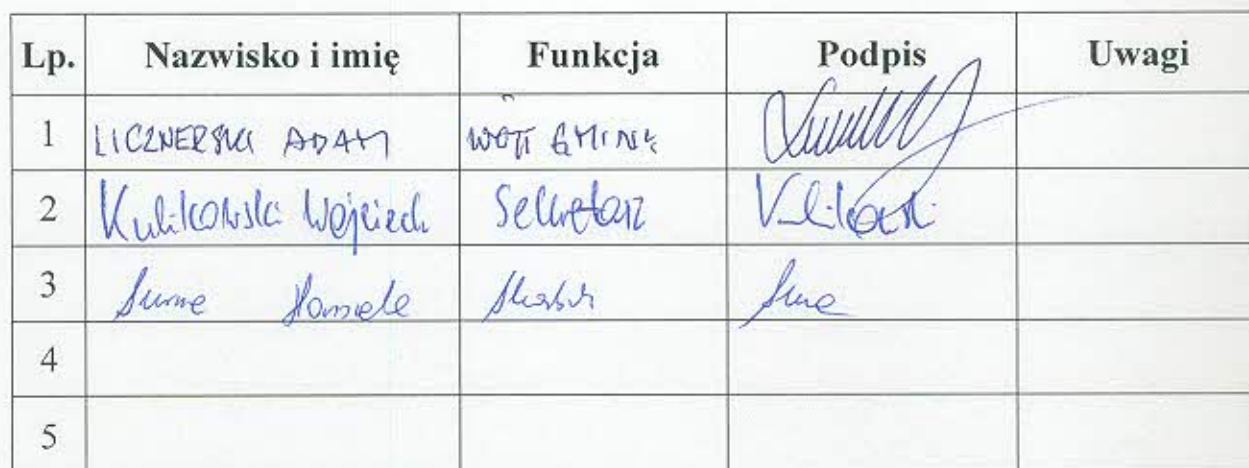 Lp. Nazwisko i imię Funkcja Podpis Uwagi
1 LICZNERSKI ADAM WÓJT GMINY
2 Kulikowski Wojciech Sekretarz Kulikowski
3
4
5